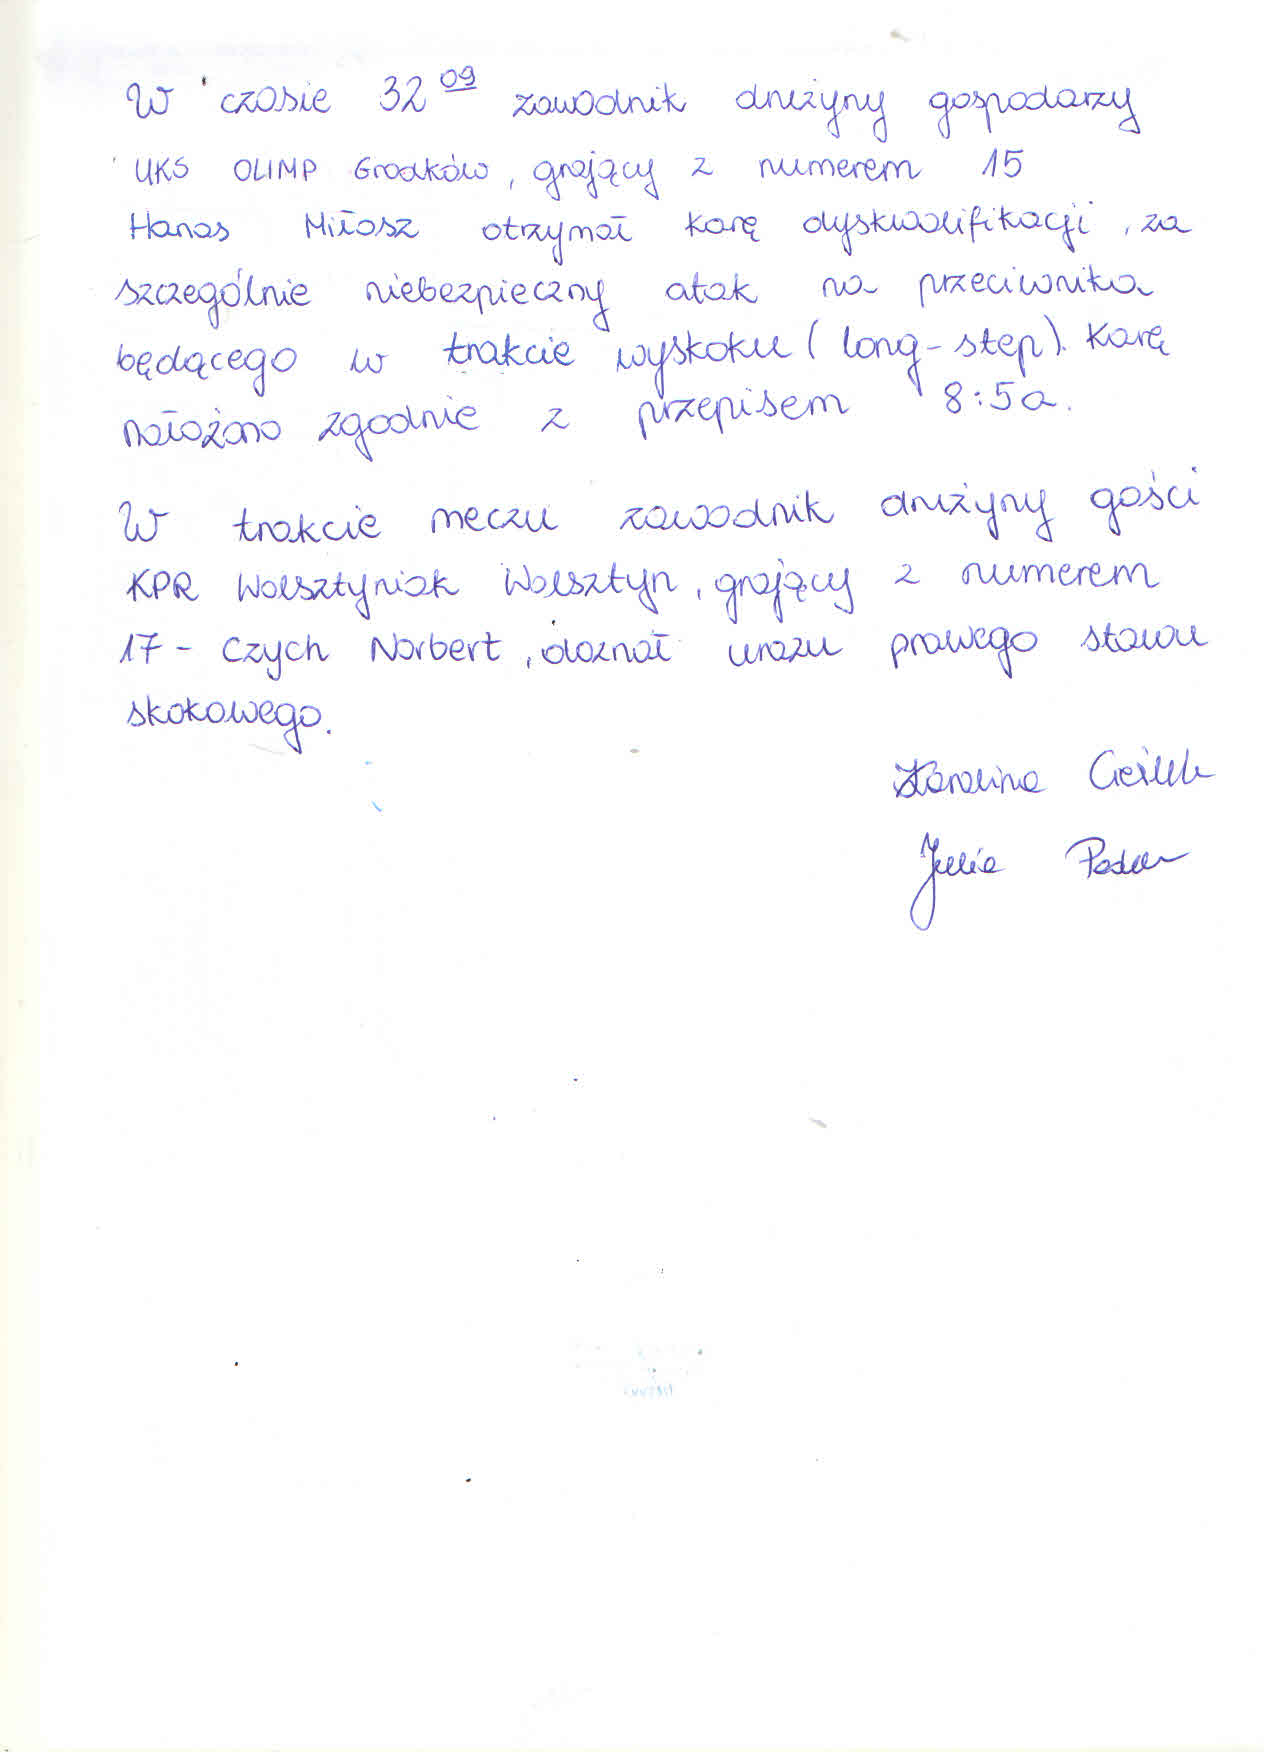 W czasie 32 09 zawodnik drużyny gospodarzy
UKS OLIMP Grodków, grający z numerem 15
Hanas Miłosz otrzymał karę dyskwalifikacji, za
szczególnie niebezpieczny atak na przeciwnika
będącego w trakcie wyskoku (long-step). Karę
nałożono zgodnie z przepisem 8:5a.
W trakcie meczu zawodnik drużyny gości
KPR Wolsztyniak Wolsztyn, grający z numerem
17 - Czych Norbert, doznał urazu prawego stawu
skokowego.
Karolina
Julia